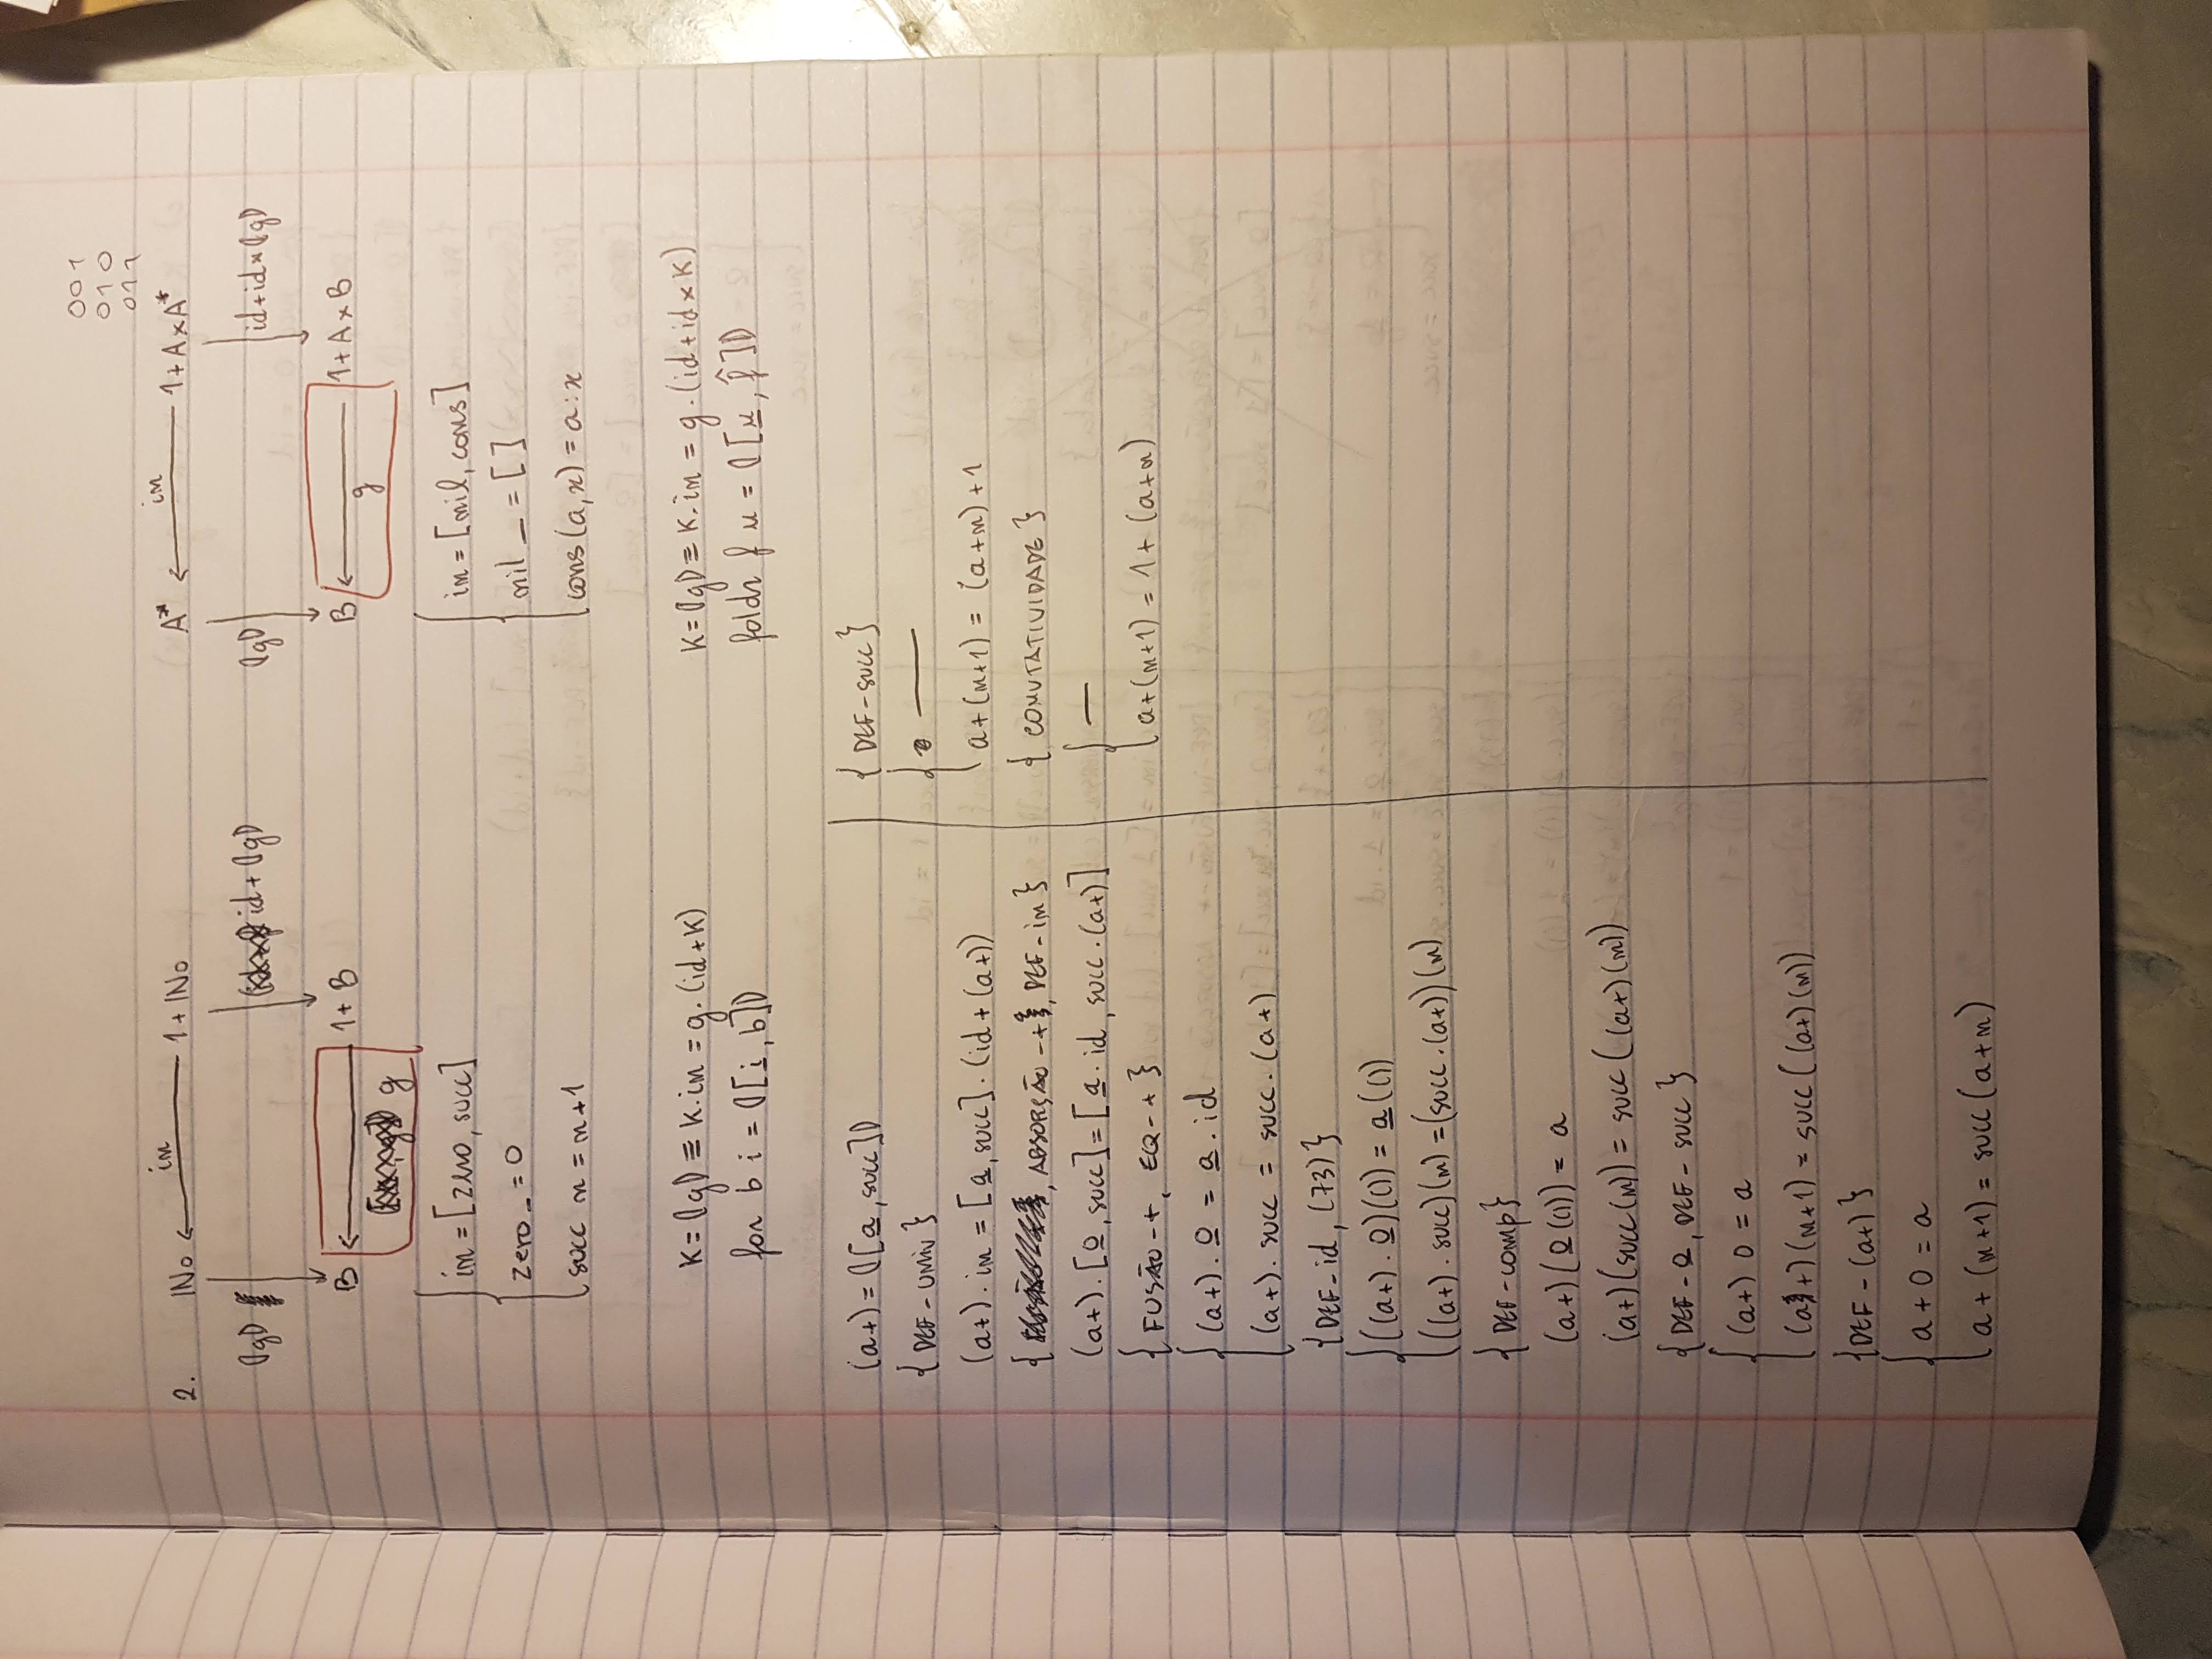 001
010
011
2. ℕ₀ ←in— 1 + ℕ₀
⦇g⦈ id + ⦇g⦈
B ← 1 + B
g
in = [zero, succ]
zero _ = 0
succ n = n+1
K = ⦇g⦈ ≡ K . in = g . (id + K)
for b i = ⦇[i̲, b]⦈
A* ←in— 1 + A × A*
⦇g⦈ id + id × ⦇g⦈
B ← 1 + A × B
g
in = [nil, cons]
nil _ = [ ]
cons (a, x) = a : x
K = ⦇g⦈ ≡ K . in = g . (id + id × K)
foldr f u = ⦇[u̲, f̂]⦈
(a+) = ⦇[a̲, succ]⦈
{ DEF - UNIV }
(a+) . in = [a̲, succ] . (id + (a+))
{ , ABSORÇÃO -+, DEF - in }
(a+) . [0̲, succ] = [a̲ . id, succ . (a+)]
{ FUSÃO -+, EQ -+ }
(a+) . 0̲ = a̲ . id
(a+) . succ = succ . (a+)
{ DEF - id, (73) }
((a+) . 0̲)(()) = a̲(())
((a+) . succ)(n) = (succ . (a+))(n)
{ DEF - comp }
(a+)(0̲(())) = a
(a+)(succ(n)) = succ((a+)(n))
{ DEF - 0̲, DEF - succ }
(a+) 0 = a
(a+)(n+1) = succ((a+)(n))
{ DEF - (a+) }
a + 0 = a
a + (n+1) = succ(a+n)
{ DEF - succ }
—
a + (n+1) = (a+n) + 1
{ COMUTATIVIDADE }
—
a + (n+1) = 1 + (a+n)